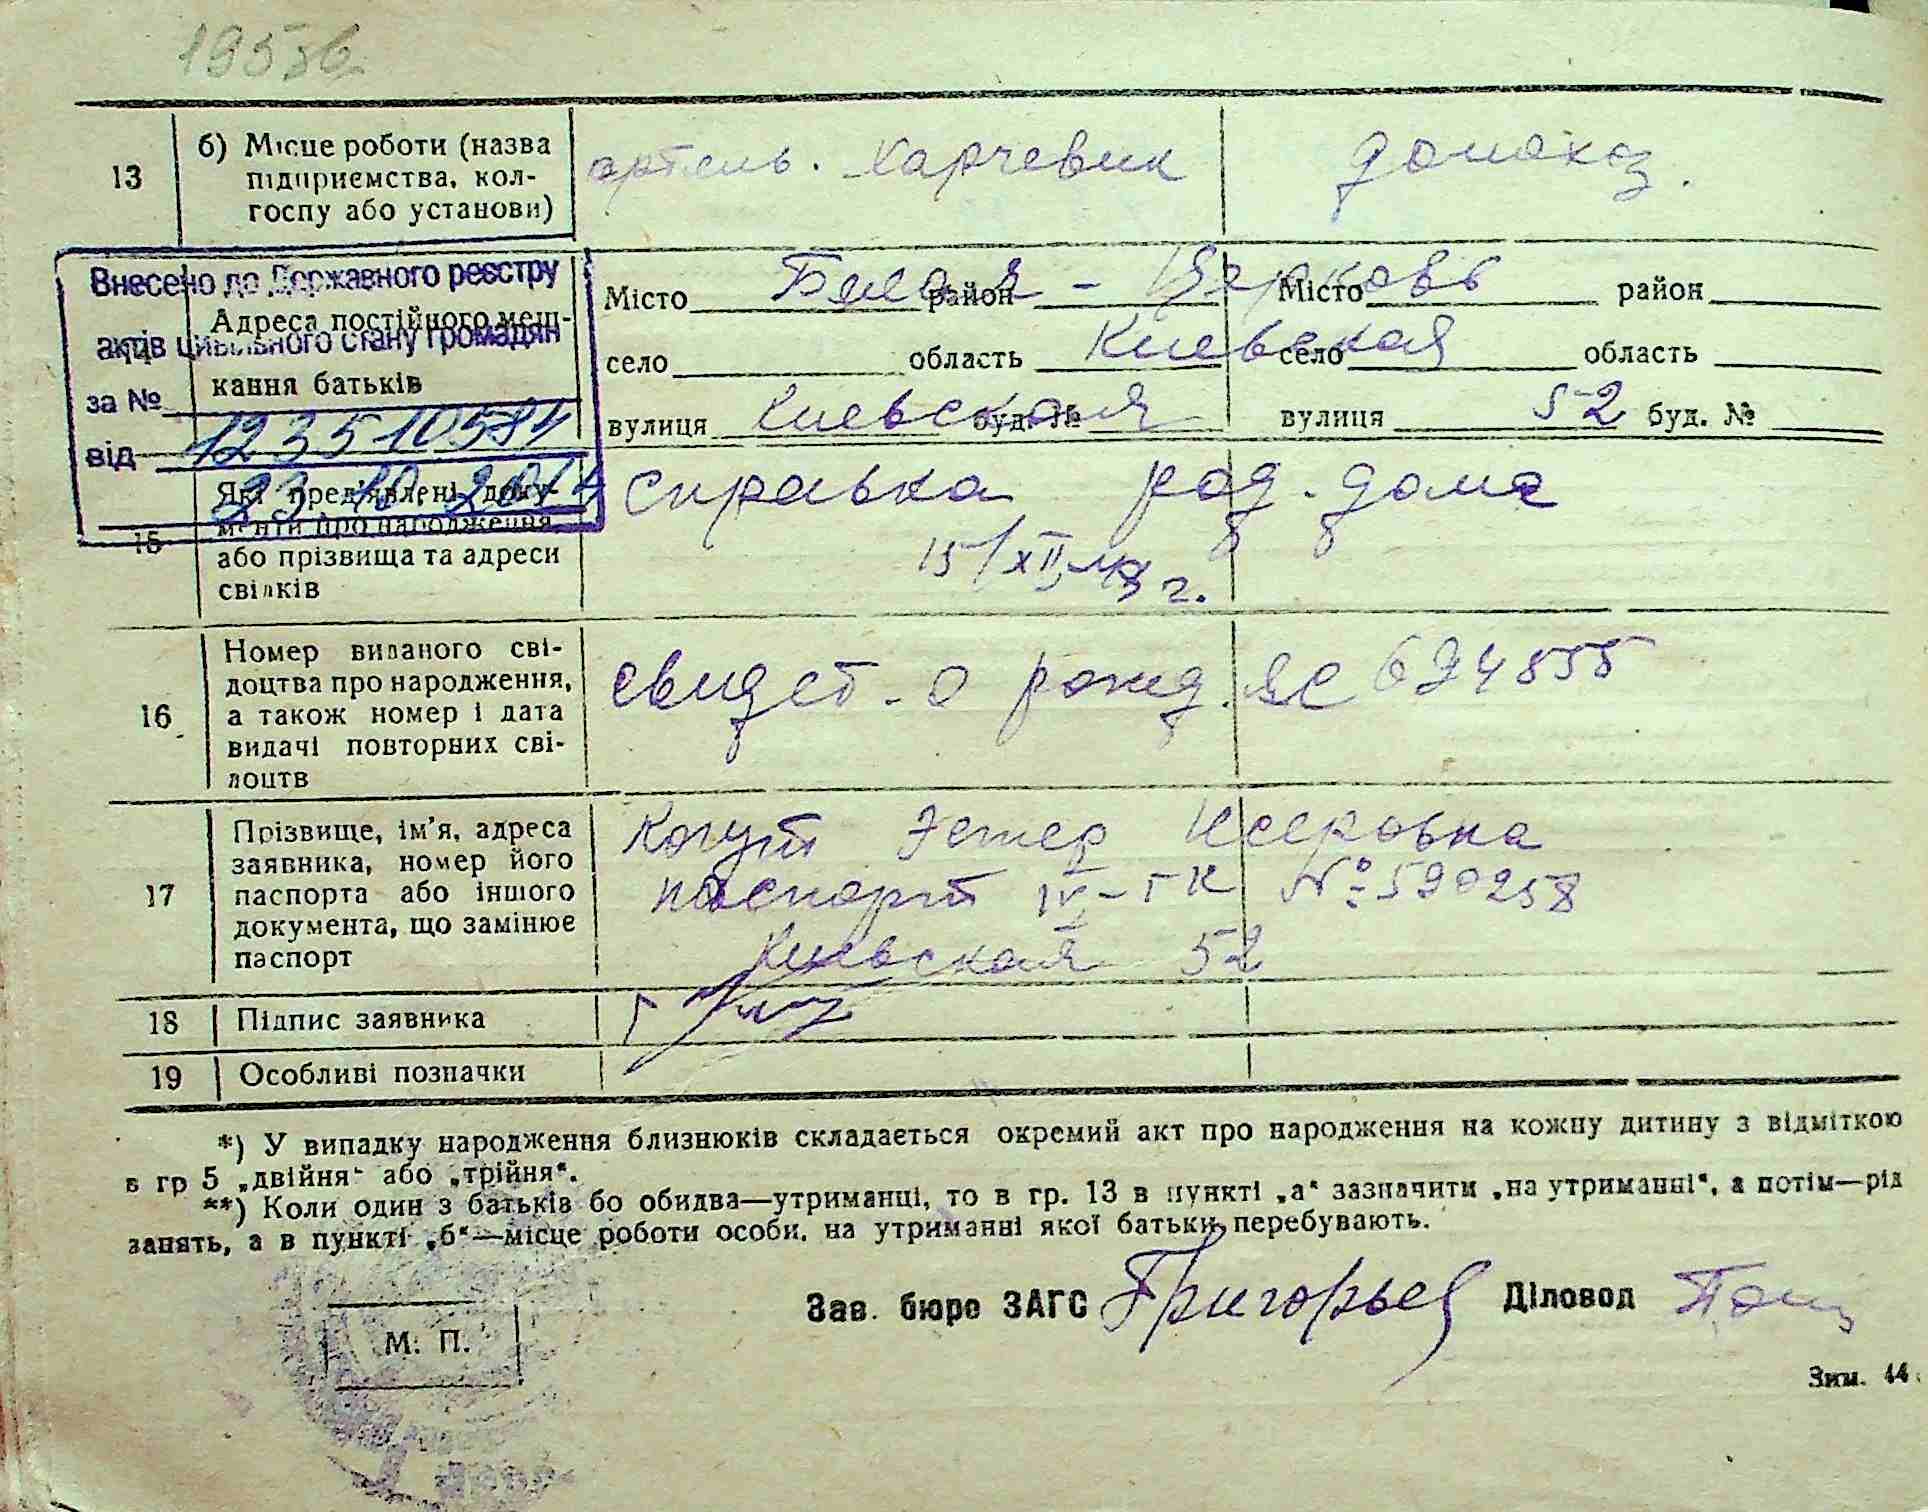 13 б) Місце роботи (назва
підприємства, кол-
госпу або установи)
артель. Харчевик
домохоз.
Внесено до Державного реєстру
актів цивільного стану громадян
за №
від
Адреса постійного меш-
кання батьків
Місто Белая - Церковь район Місто район
село область Киевская село область
вулиця Киевская буд. № вулиця 52 буд. №
15 Які пред'явлені доку-
менти про народження
або прізвища та адреси
свідків
справка род. дома
15/XII 48 г.
16 Номер виданого сві-
доцтва про народження,
а також номер і дата
видачі повторних сві-
доцтв
свидет. о рожд. ЯС 694855
17 Прізвище, ім'я, адреса
заявника, номер його
паспорта або іншого
документа, що замінює
паспорт
Когут Эстер
паспорт IV-ГК № 590258
Киевская 52
18 Підпис заявника
19 Особливі позначки
*) У випадку народження близнюків складається окремий акт про народження на кожну дитину з відміткою
в гр 5 „двійня“ або „трійня“.
**) Коли один з батьків бо обидва—утриманці, то в гр. 13 в пункті „а“ зазначити „на утриманні“, а потім—рід
занять, а в пункті „б“—місце роботи особи, на утриманні якої батьки перебувають.
Зав. бюро ЗАГС Григорьев Діловод
М. П.
Зим. 44